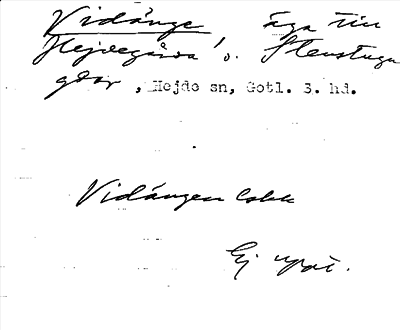 Vidänge äga till
Hejdegårda o. Stenstugu
gdar, Hejde sn, Gotl. S. hd.
Vidängen Cobk
Ej uppt.